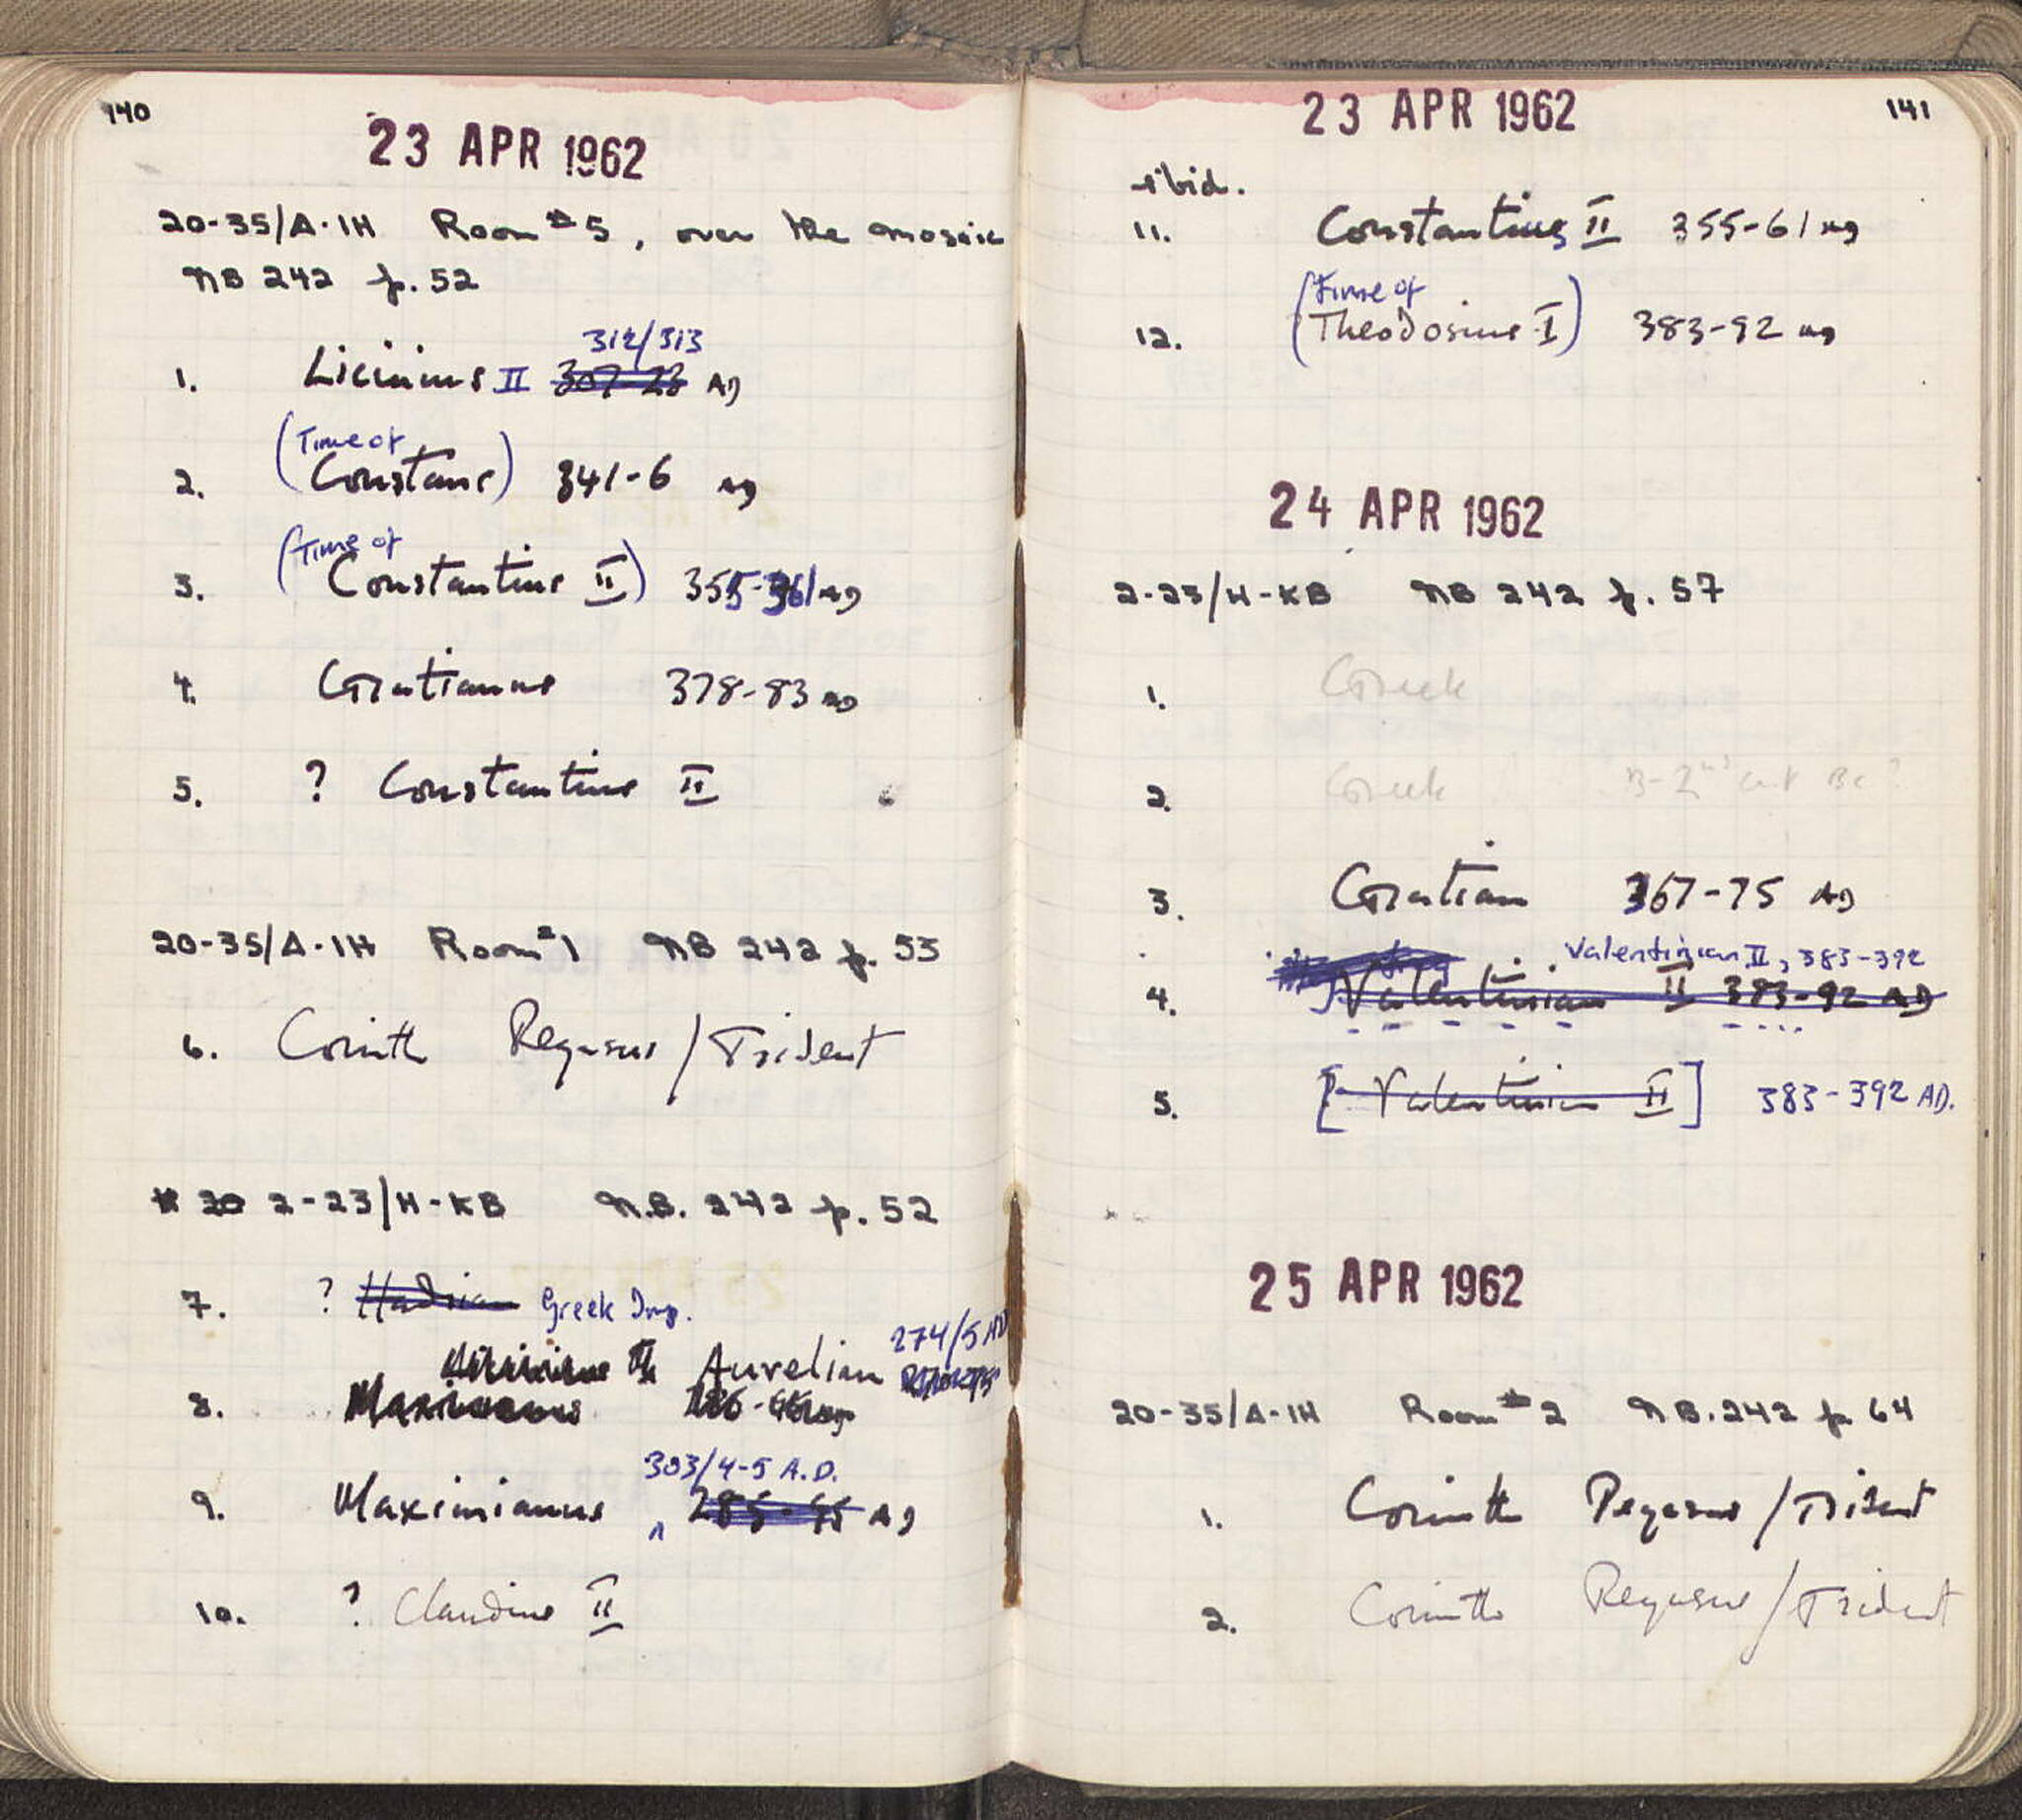 140
23 APR 1962
20-35/A-IH Room #5, over the mosaic
NB 242 p. 52
312/313
1. Licinius II 307-23 AD
(Time of
2. Constans) 341-6 AD
(Time of
3. Constantius II) 355-361 AD
4. Gratianus 378-83 AD
5. ? Constantius II
20-35/A-IH Room #1 NB 242 p. 53
6. Corinth Pegasus/Trident
20 2-23/H-KB N.B. 242 p. 52
7. ? Hadrian Greek Imp.
274/5 AD
II Aurelian
8. Maximianus
303/4-5 A.D.
9. Maximianus 285-95 AD
10. ? Claudius II
141
23 APR 1962
ibid.
11. Constantius II 355-61 AD
(Time of
12. Theodosius I) 383-92 AD
24 APR 1962
2-23/H-KB NB 242 p. 57
1. Greek
2. Greek 3-2nd cent BC?
3. Gratian 367-75 AD
Valentinian II, 383-392
4. Valentinian II 383-92 AD
5. [Valentinian II] 383-392 AD.
25 APR 1962
20-35/A-IH Room #2 NB. 242 p 64
1. Corinth Pegasus/Trident
2. Corinth Pegasus/Trident